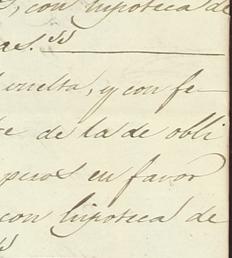 , con hipoteca de
as."
vuelta, y con fe-
de la de obli
pesos en favor
con hipoteca de